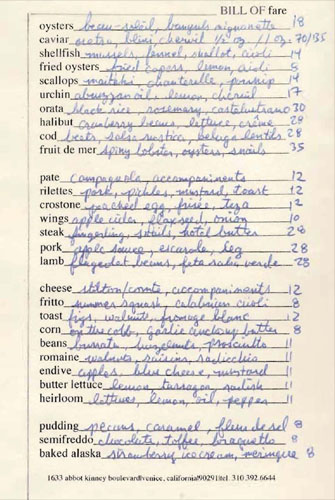 BILL OF fare
oysters beau-soleil, banyuls mignonette 18
caviar osetra, blini, chervil 1/2 oz / 1 oz 70/135
shellfish mussels, fennel, shallot, aioli 14
fried oysters fried capers, lemon, aioli 8
scallops maitake, chanterelle, parsnip 14
urchin abruzzan oil, lemon, chervil 17
orata black rice, rosemary, castelvetrano 30
halibut cranberry beans, lettuce, crème 28
cod beets, salsa rustica, beluga lentils 28
fruit de mer spiny lobster, oysters, snails 35
pate campagnola, accompaniments 12
rillettes pork, pickles, mustard, toast 12
crostone poached egg, frisée, 12
wings apple cider, flaxseed, onion 10
steak fingerling, shells, hotel butter 28
pork apple sauce, escarole, leg 28
lamb flageolet beans, feta salsa verde 28
cheese stilton/comte, accompaniments 12
fritto summer squash, calabrian aioli 8
toast figs, walnuts, fromage blanc 12
corn on the cobb, garlic anchovy butter 8
beans burrata, hazelnuts, prosciutto 11
romaine walnuts, raisins, radicchio 11
endive apples, bleu cheese, mustard 11
butter lettuce lemon, tarragon, radish 11
heirloom lettuces, lemon, oil, pepper 11
pudding pecans, caramel, fleur de sel 8
semifreddo chocolate, toffee, 8
baked alaska strawberry ice cream, meringue 8
1633 abbot kinney boulevard|venice, california|90291|tel. 310.392.6644